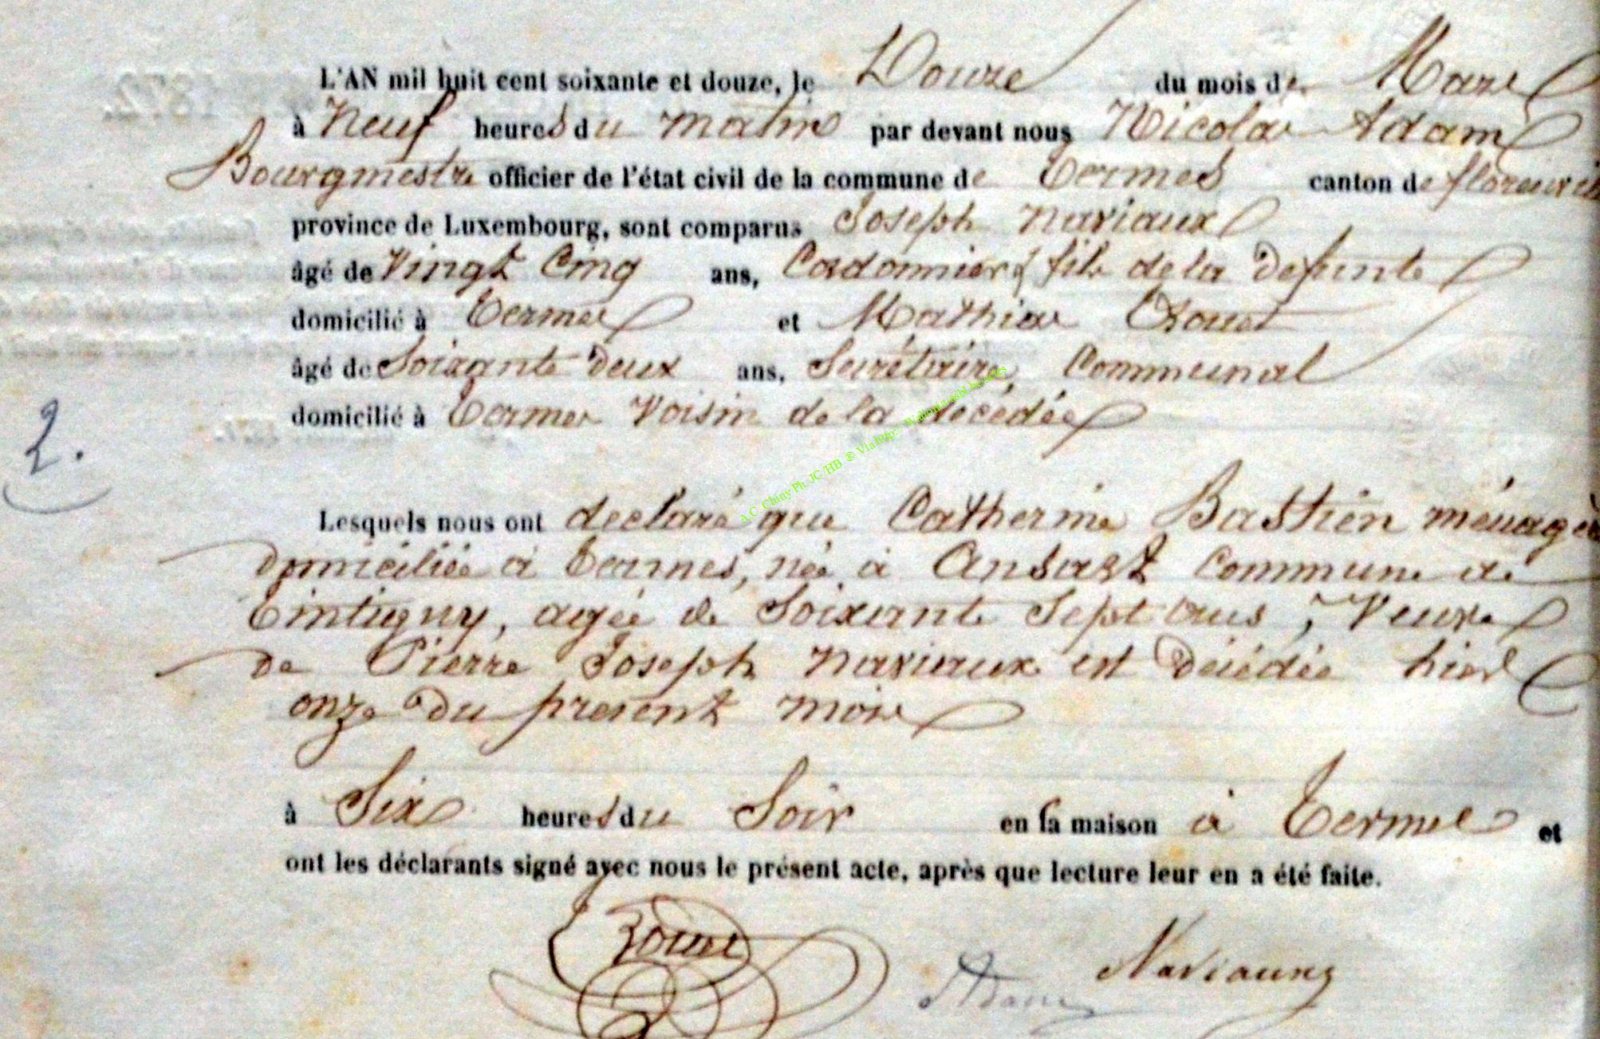 L'AN mil huit cent soixante et douze, le Douze du mois de Mars
à Neuf heures du matin par devant nous Nicolas Adam
Bourgmestre officier de l'état civil de la commune de Termes canton de florenvil
province de Luxembourg, sont comparus Joseph Naviaux
âgé de Vingt Cinq ans, Cordonnier, fils de la defunte
domicilié à Termes et Mathieu
âgé de Soixante Deux ans, Secrétaire Communal
domicilié à Termes Voisin de la décédée
2.
Lesquels nous ont declaré que Catherine Bastien ménagèr
domiciliée à Termes, née à Ansart Commune de
Tintigny, agée de Soixante Sept ans, Veuve
de Pierre Joseph Naviaux est Décédée hier
onze du present mois
à Six heures du Soir en sa maison à Termes et
ont les déclarants signé avec nous le présent acte, après que lecture leur en a été faite.
Adam Naviaux